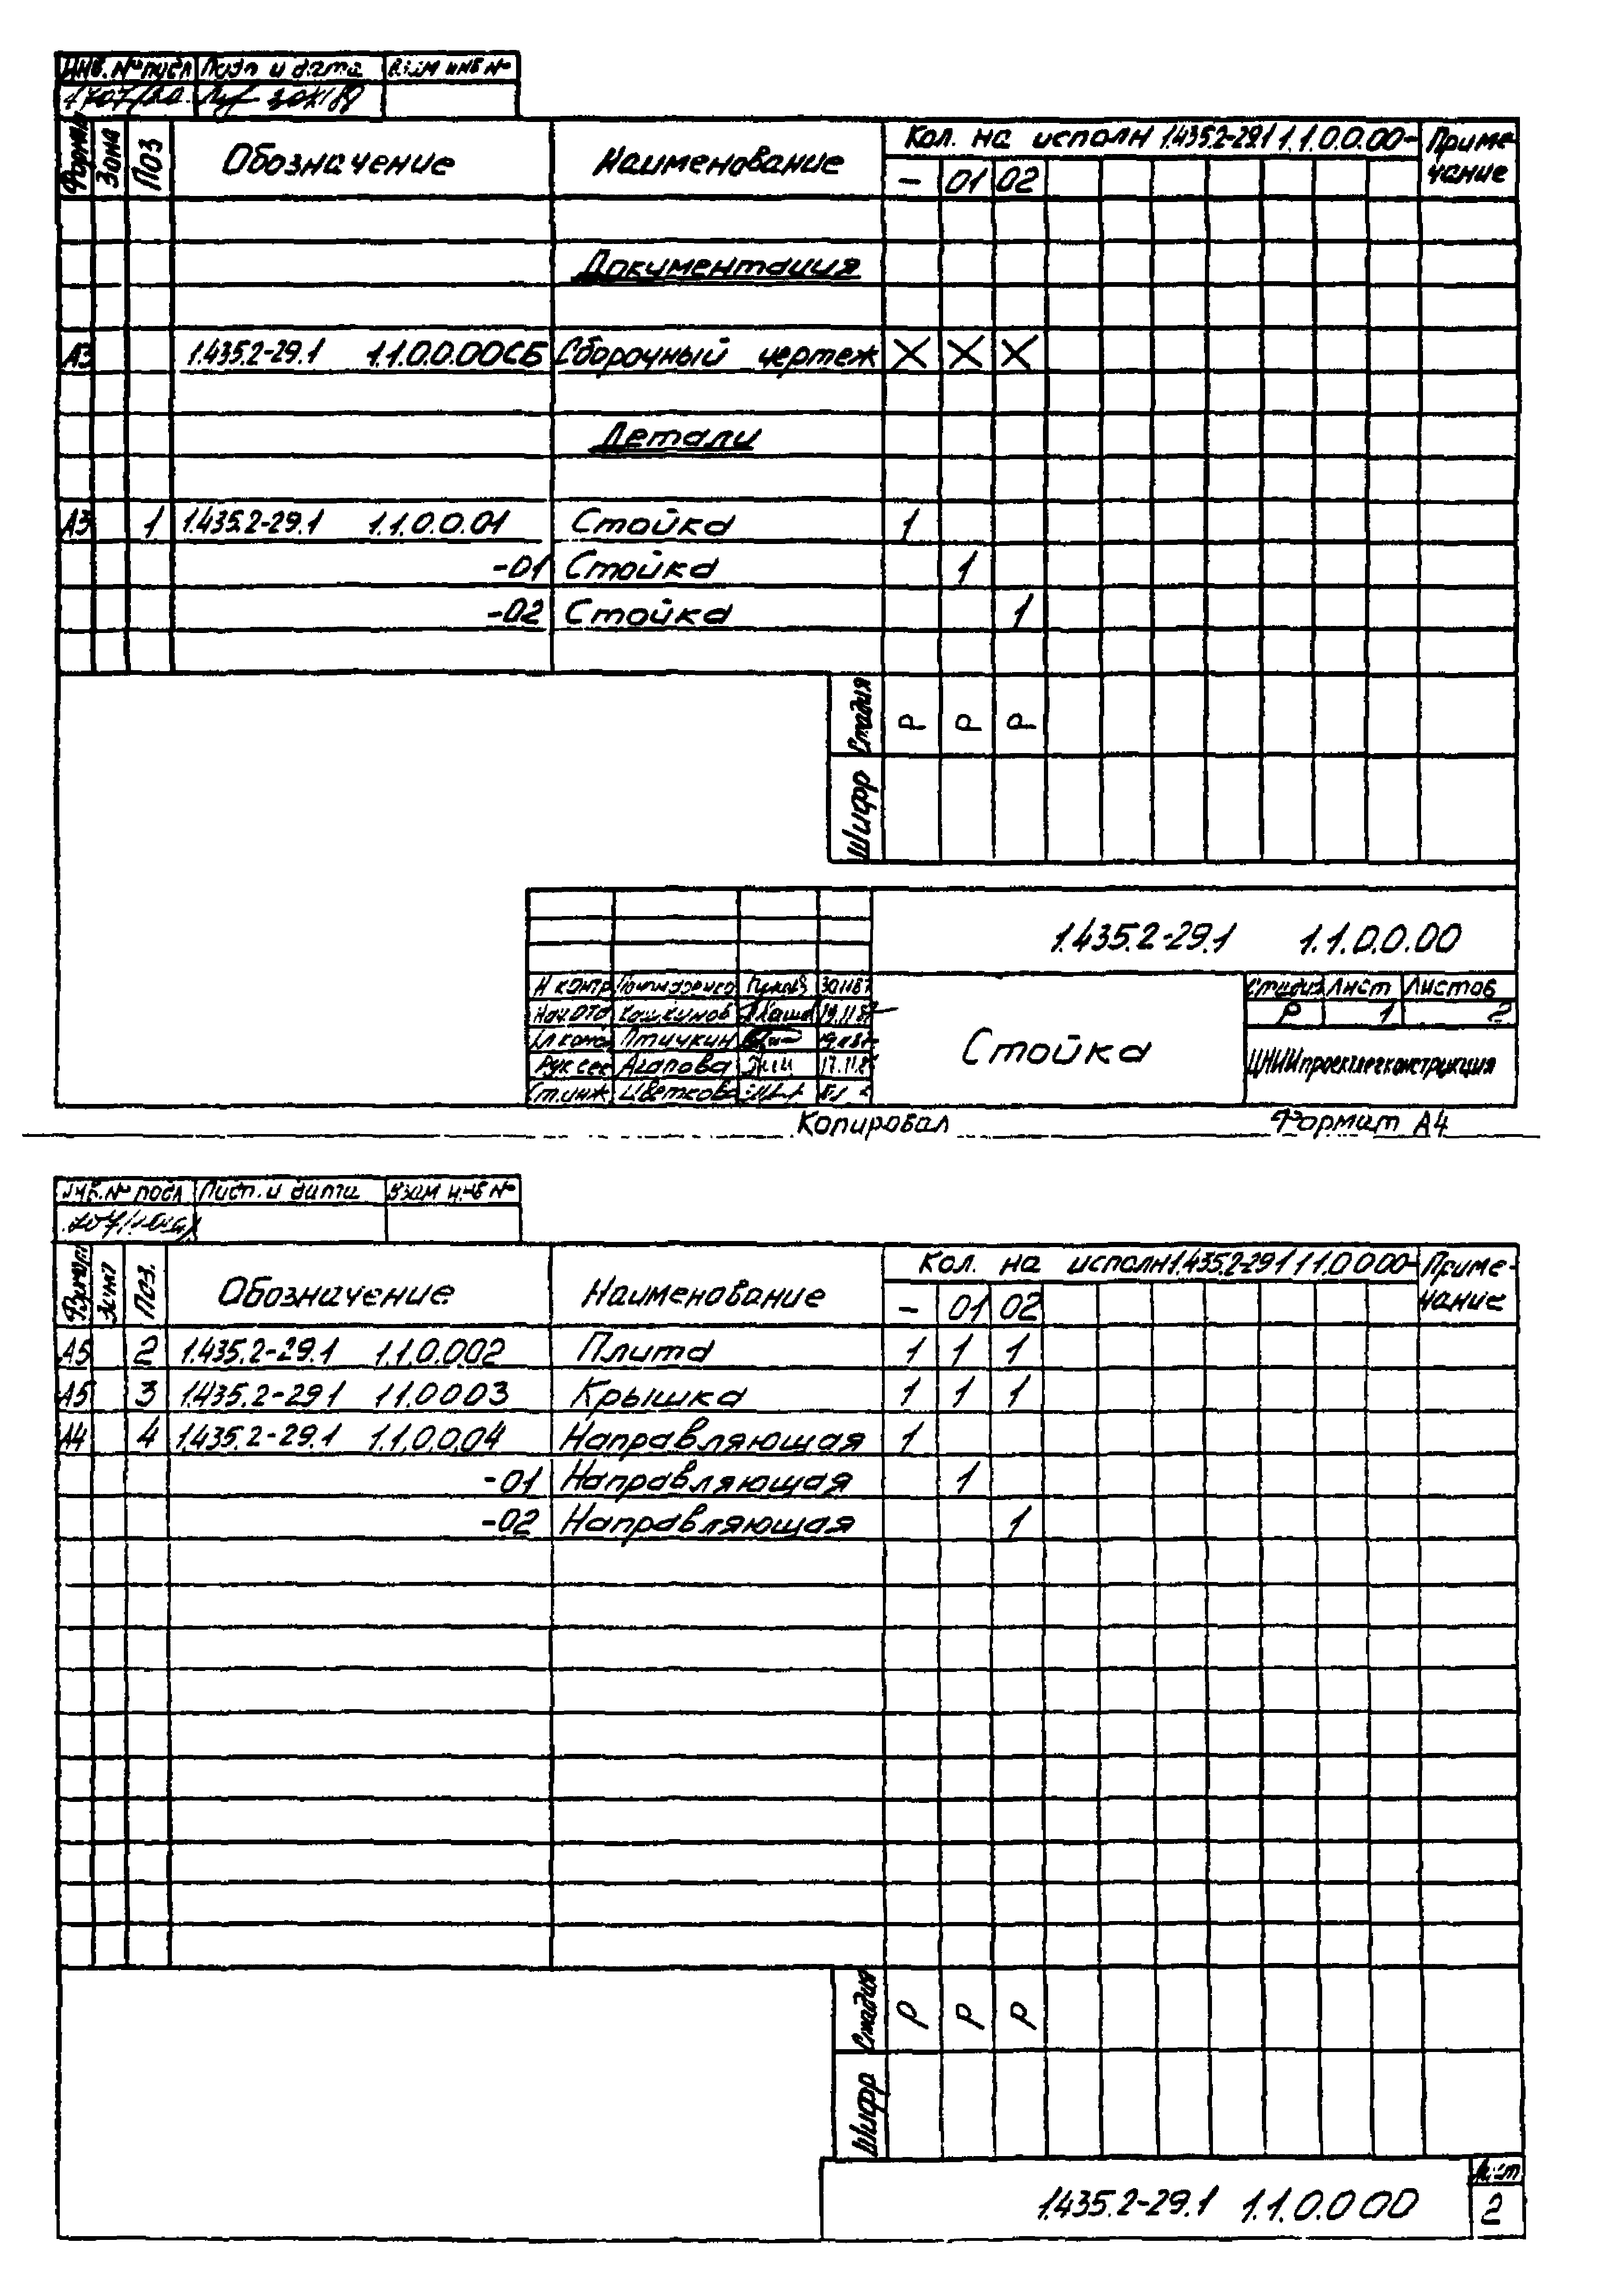 Инв. № подл Подп и дата Взам инв №
Формат Зона Поз Обозначение Наименование Кол. на исполн 1.435.2-29.1 1.1.0.0.00- Приме-
чание
- 01 02
Документация
А3 1.435.2-29.1 1.1.0.0.00СБ Сборочный чертеж X X X
Детали
А3 1 1.435.2-29.1 1.1.0.0.01 Стойка 1
-01 Стойка 1
-02 Стойка 1
Стадия Р Р Р
Шифр
1.435.2-29.1 1.1.0.0.00
Н контр
Нач ОТД Кашкунов
Птичкин
Рук сек Агапова
Ст. инж Цветкова
Стойка
Стадия Лист Листов
Р 1 2
ЦНИИпроектлегконструкция
Копировал Формат А4
Инв. № подл Подп. и дата Взам инв №
Формат Зона Поз. Обозначение Наименование Кол. на исполн 1.435.2-29.1 1.1.0.0.00- Приме-
чание
- 01 02
А5 2 1.435.2-29.1 1.1.0.002 Плита 1 1 1
А5 3 1.435.2-291 1.1.0003 Крышка 1 1 1
А4 4 1.435.2-29.1 1.1.0.0.04 Направляющая 1
-01 Направляющая 1
-02 Направляющая 1
Стадия Р Р Р
Шифр
1.435.2-29.1 1.1.0.0.00
Лист
2